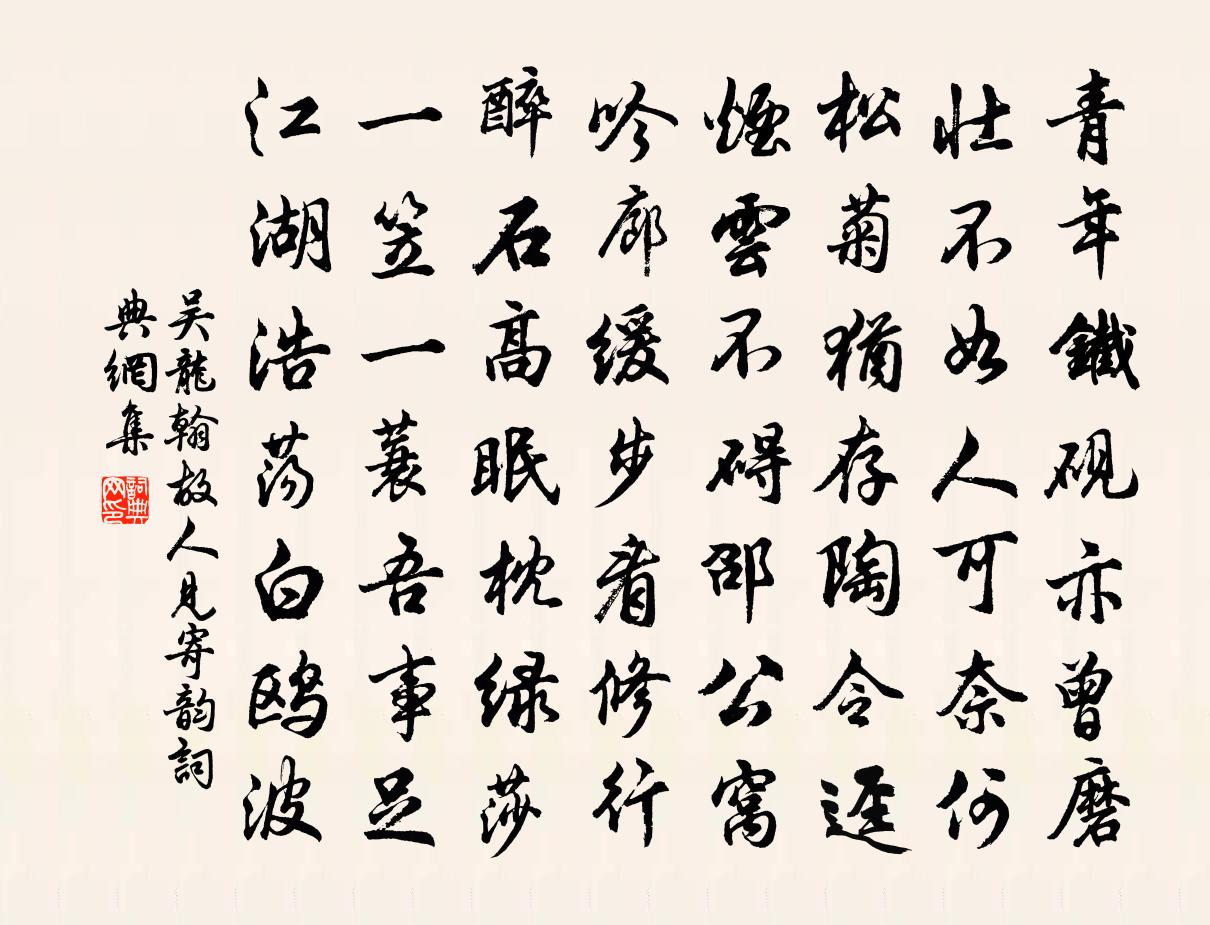 青年鐵硯亦曾磨
壯不如人可奈何
松菊猶存陶令逕
煙雲不碍邵公窩
吟廊緩步看修行
醉石高眠枕緑莎
一笠一蓑吾事足
江湖浩蕩白鷗波
吴龍翰故人見寄韵詞
典網集
詞典网印